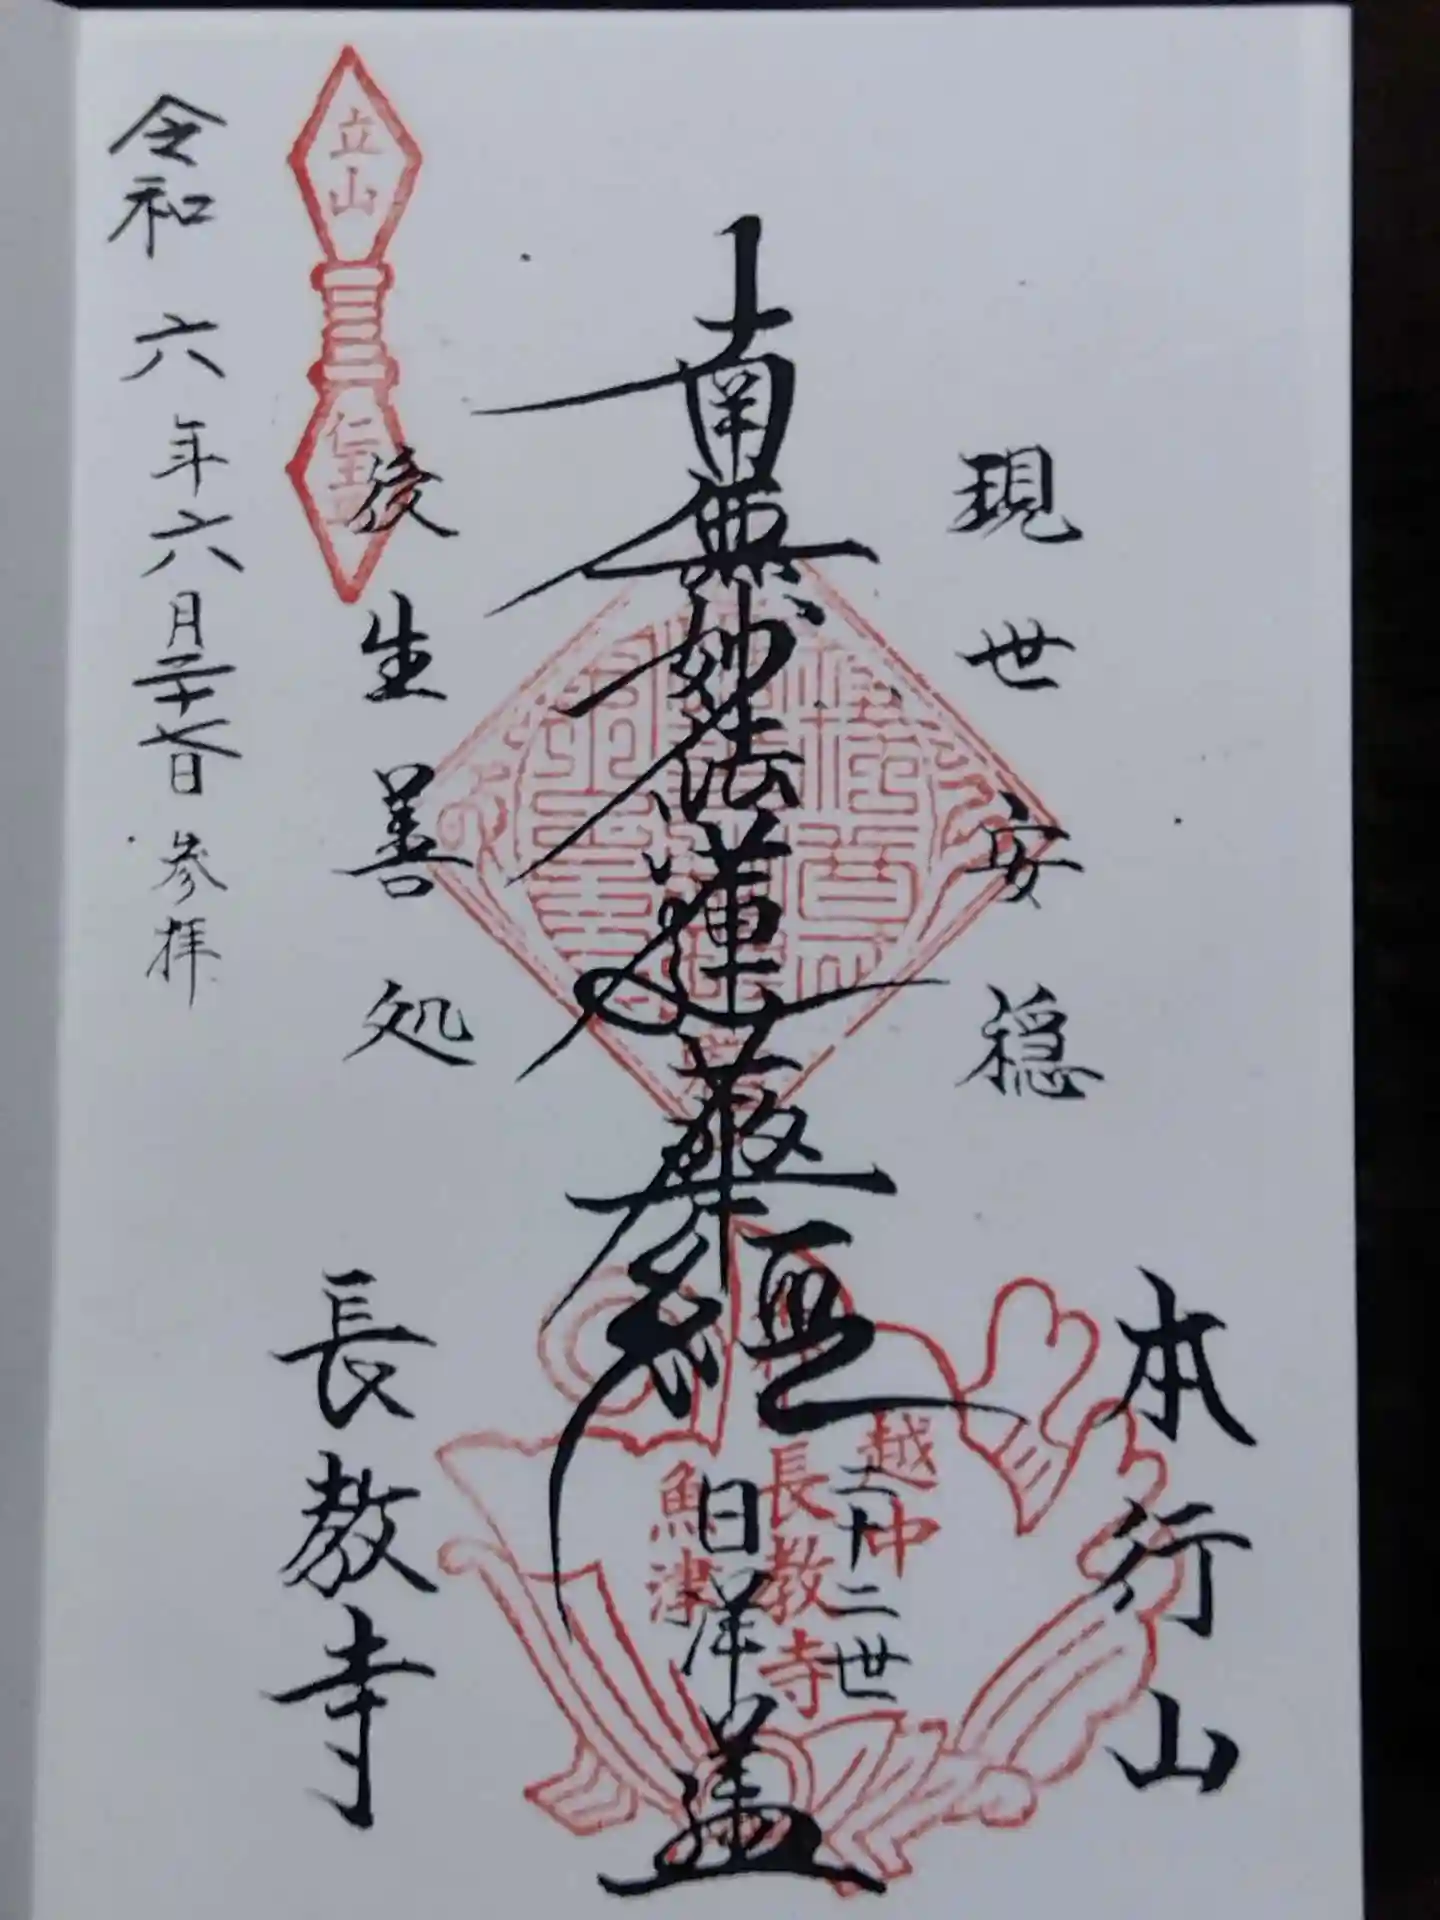 現世安穏
本行山
南無妙法蓮華經
二十二世
日洋
越中
長教寺
魚津
後生善処
長教寺
立山
仁王
令和六年六月二十七日参拝